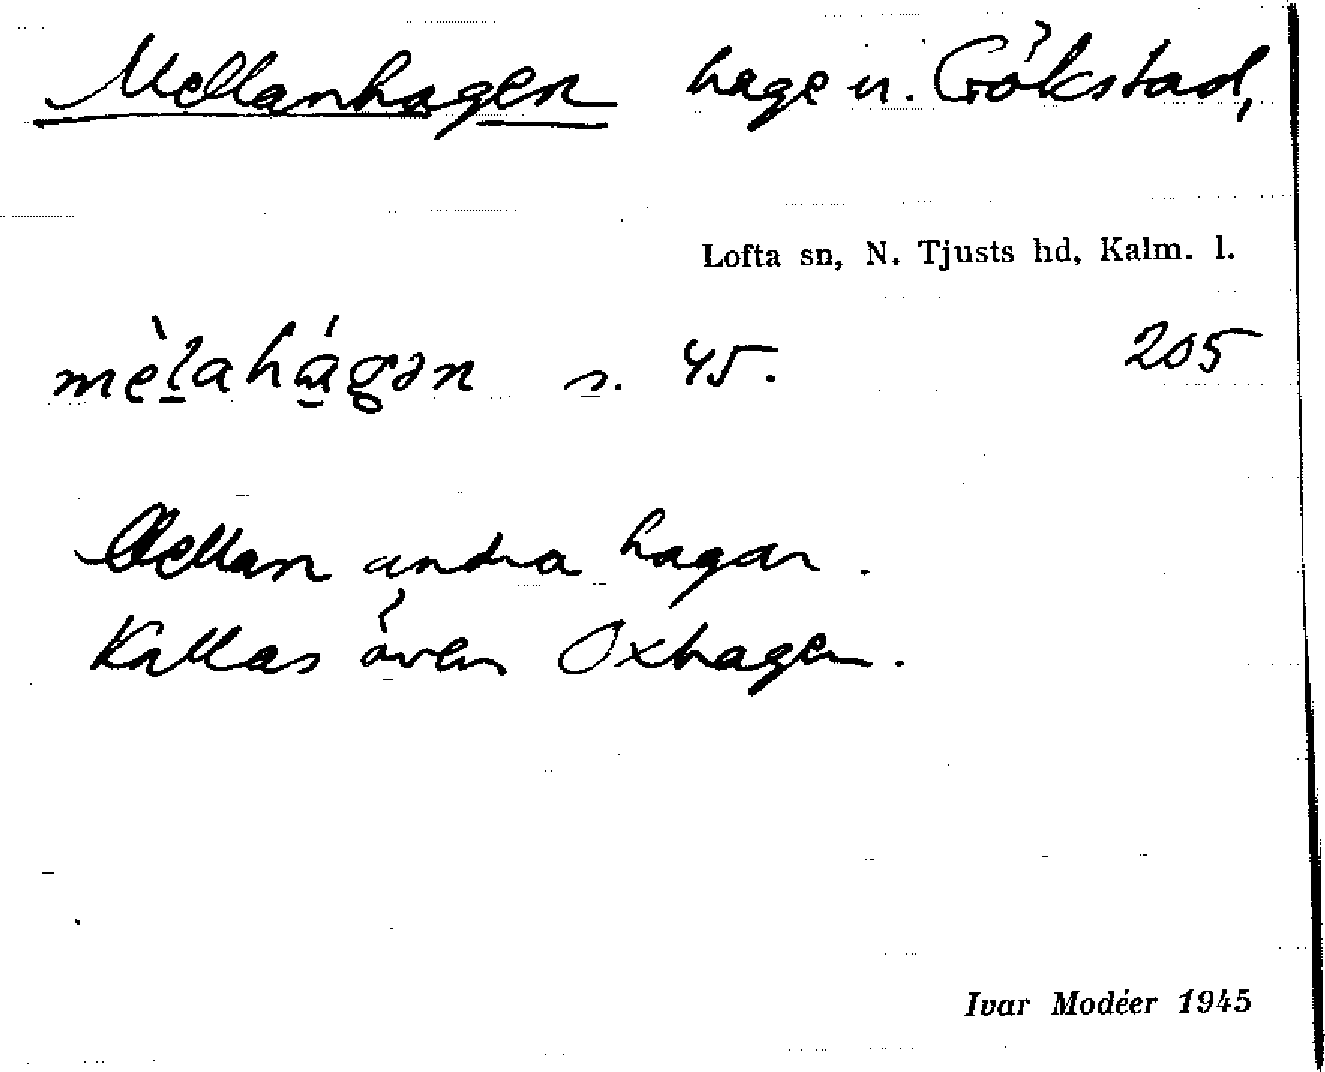 Mellanhagen hage u. Gökstad,
Lofta sn, N. Tjusts hd, Kalm. l.
mèlahágən s. 45. 205
Mellan andra hagar.
Kallas även Oxhagen.
Ivar Modéer 1945